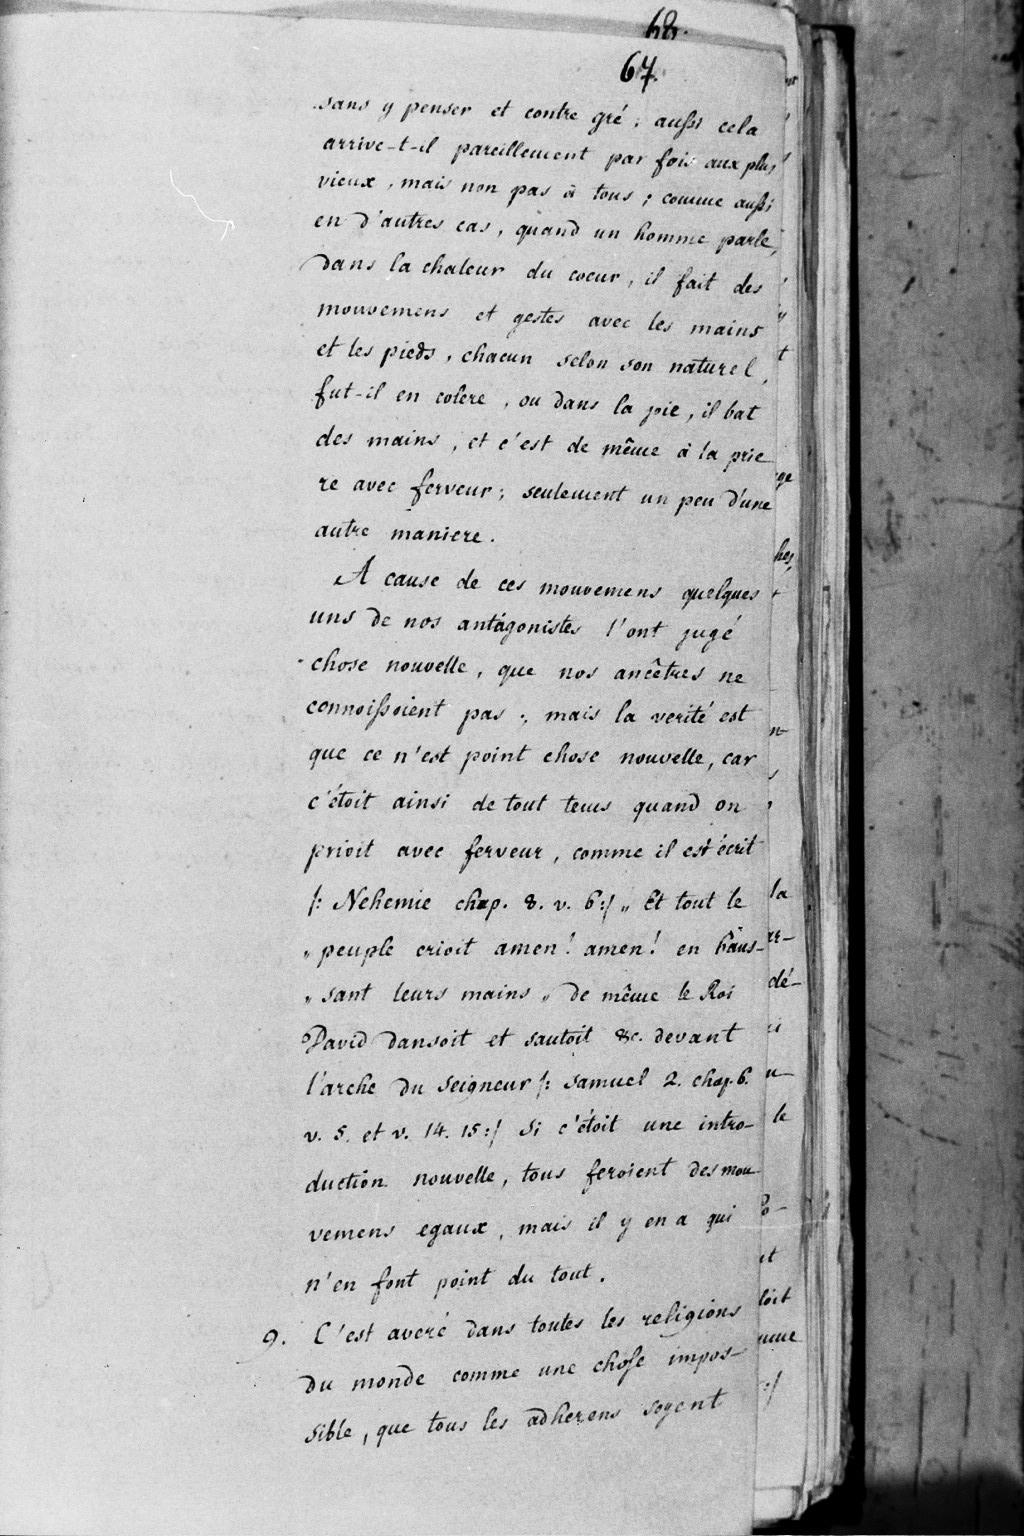 68.
67.
sans y penser et contre gré ; aussi cela
arrive-t-il pareillement par fois aux plus
vieux, mais non pas à tous ; comme aussi
en d'autres cas, quand un homme parle,
dans la chaleur du coeur, il fait des
mouvemens et gestes avec les mains
et les pieds, chacun selon son naturel,
fut-il en colere, ou dans la joie, il bat
des mains, et c'est de même à la prie
re avec ferveur ; seulement un peu d'une
autre maniere.
A cause de ces mouvemens quelques
uns de nos antagonistes l'ont jugé
chose nouvelle, que nos ancêtres ne
connoissoient pas ; mais la verité est
que ce n'est point chose nouvelle, car
c'étoit ainsi de tout tems quand on
prioit avec ferveur, comme il est écrit
/: Nehemie chap. 8. v. 6:/ „ Et tout le
„ peuple crioit amen! amen! en haus-
„ sant leurs mains „ de même le Roi
David dansoit et sautoit &c. devant
l'arche du Seigneur /: Samuel 2. chap. 6.
v. 5. et v. 14. 15:/ Si c'étoit une intro-
duction nouvelle, tous feroient des mou
vemens egaux, mais il y en a qui
n'en font point du tout.
9. C'est averé dans toutes les religions
du monde comme une chose impos-
sible, que tous les adherens soyent